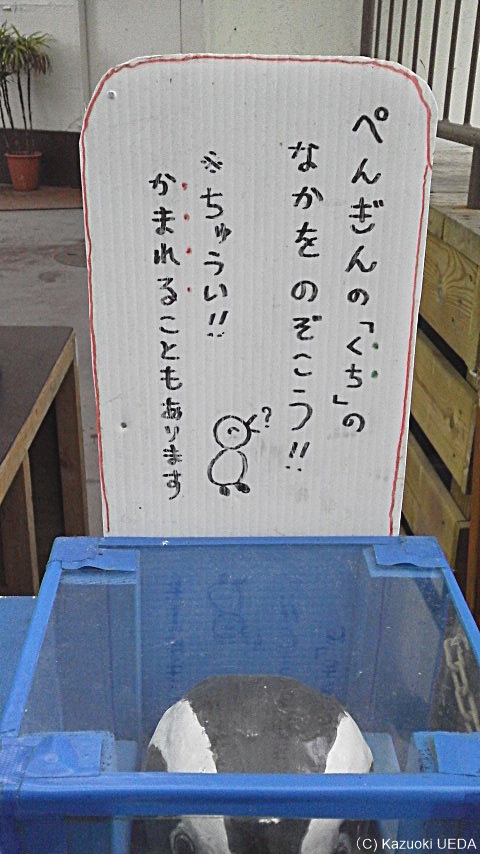 ぺんぎんの「くち」の
なかをのぞこう!!
※ちゅうい!!
かまれることもあります
?
(C) Kazuoki UEDA